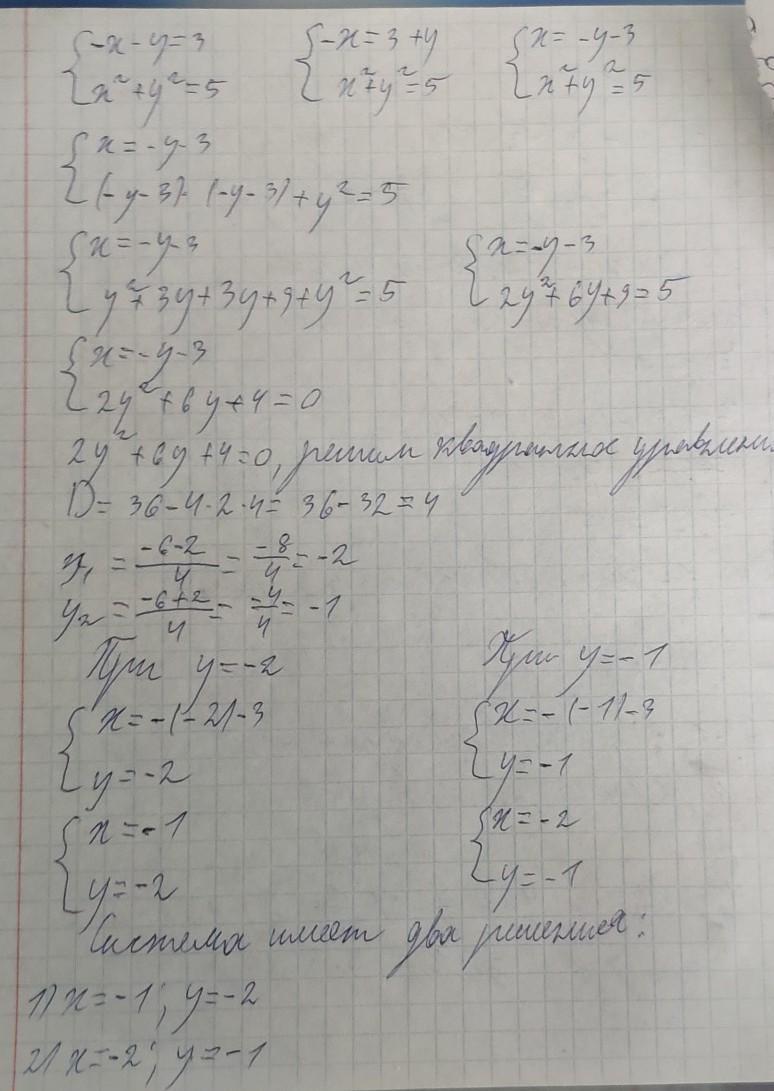 {-x-y=3 {-x=3+y {x=-y-3
{x²+y²=5 {x²+y²=5 {x²+y²=5
{x=-y-3
{(-y-3)·(-y-3)+y²=5
{x=-y-3 {x=-y-3
{y²+3y+3y+9+y²=5 {2y²+6y+9=5
{x=-y-3
{2y²+6y+4=0
2y²+6y+4=0, решим квадратное уравнени
D=36-4·2·4=36-32=4
y₁=(-6-2)/4=-8/4=-2
y₂=(-6+2)/4=-4/4=-1
При y=-2 При y=-1
{x=-(-2)-3 {x=-(-1)-3
{y=-2 {y=-1
{x=-1 {x=-2
{y=-2 {y=-1
Система имеет два решения:
1) x=-1; y=-2
2) x=-2; y=-1